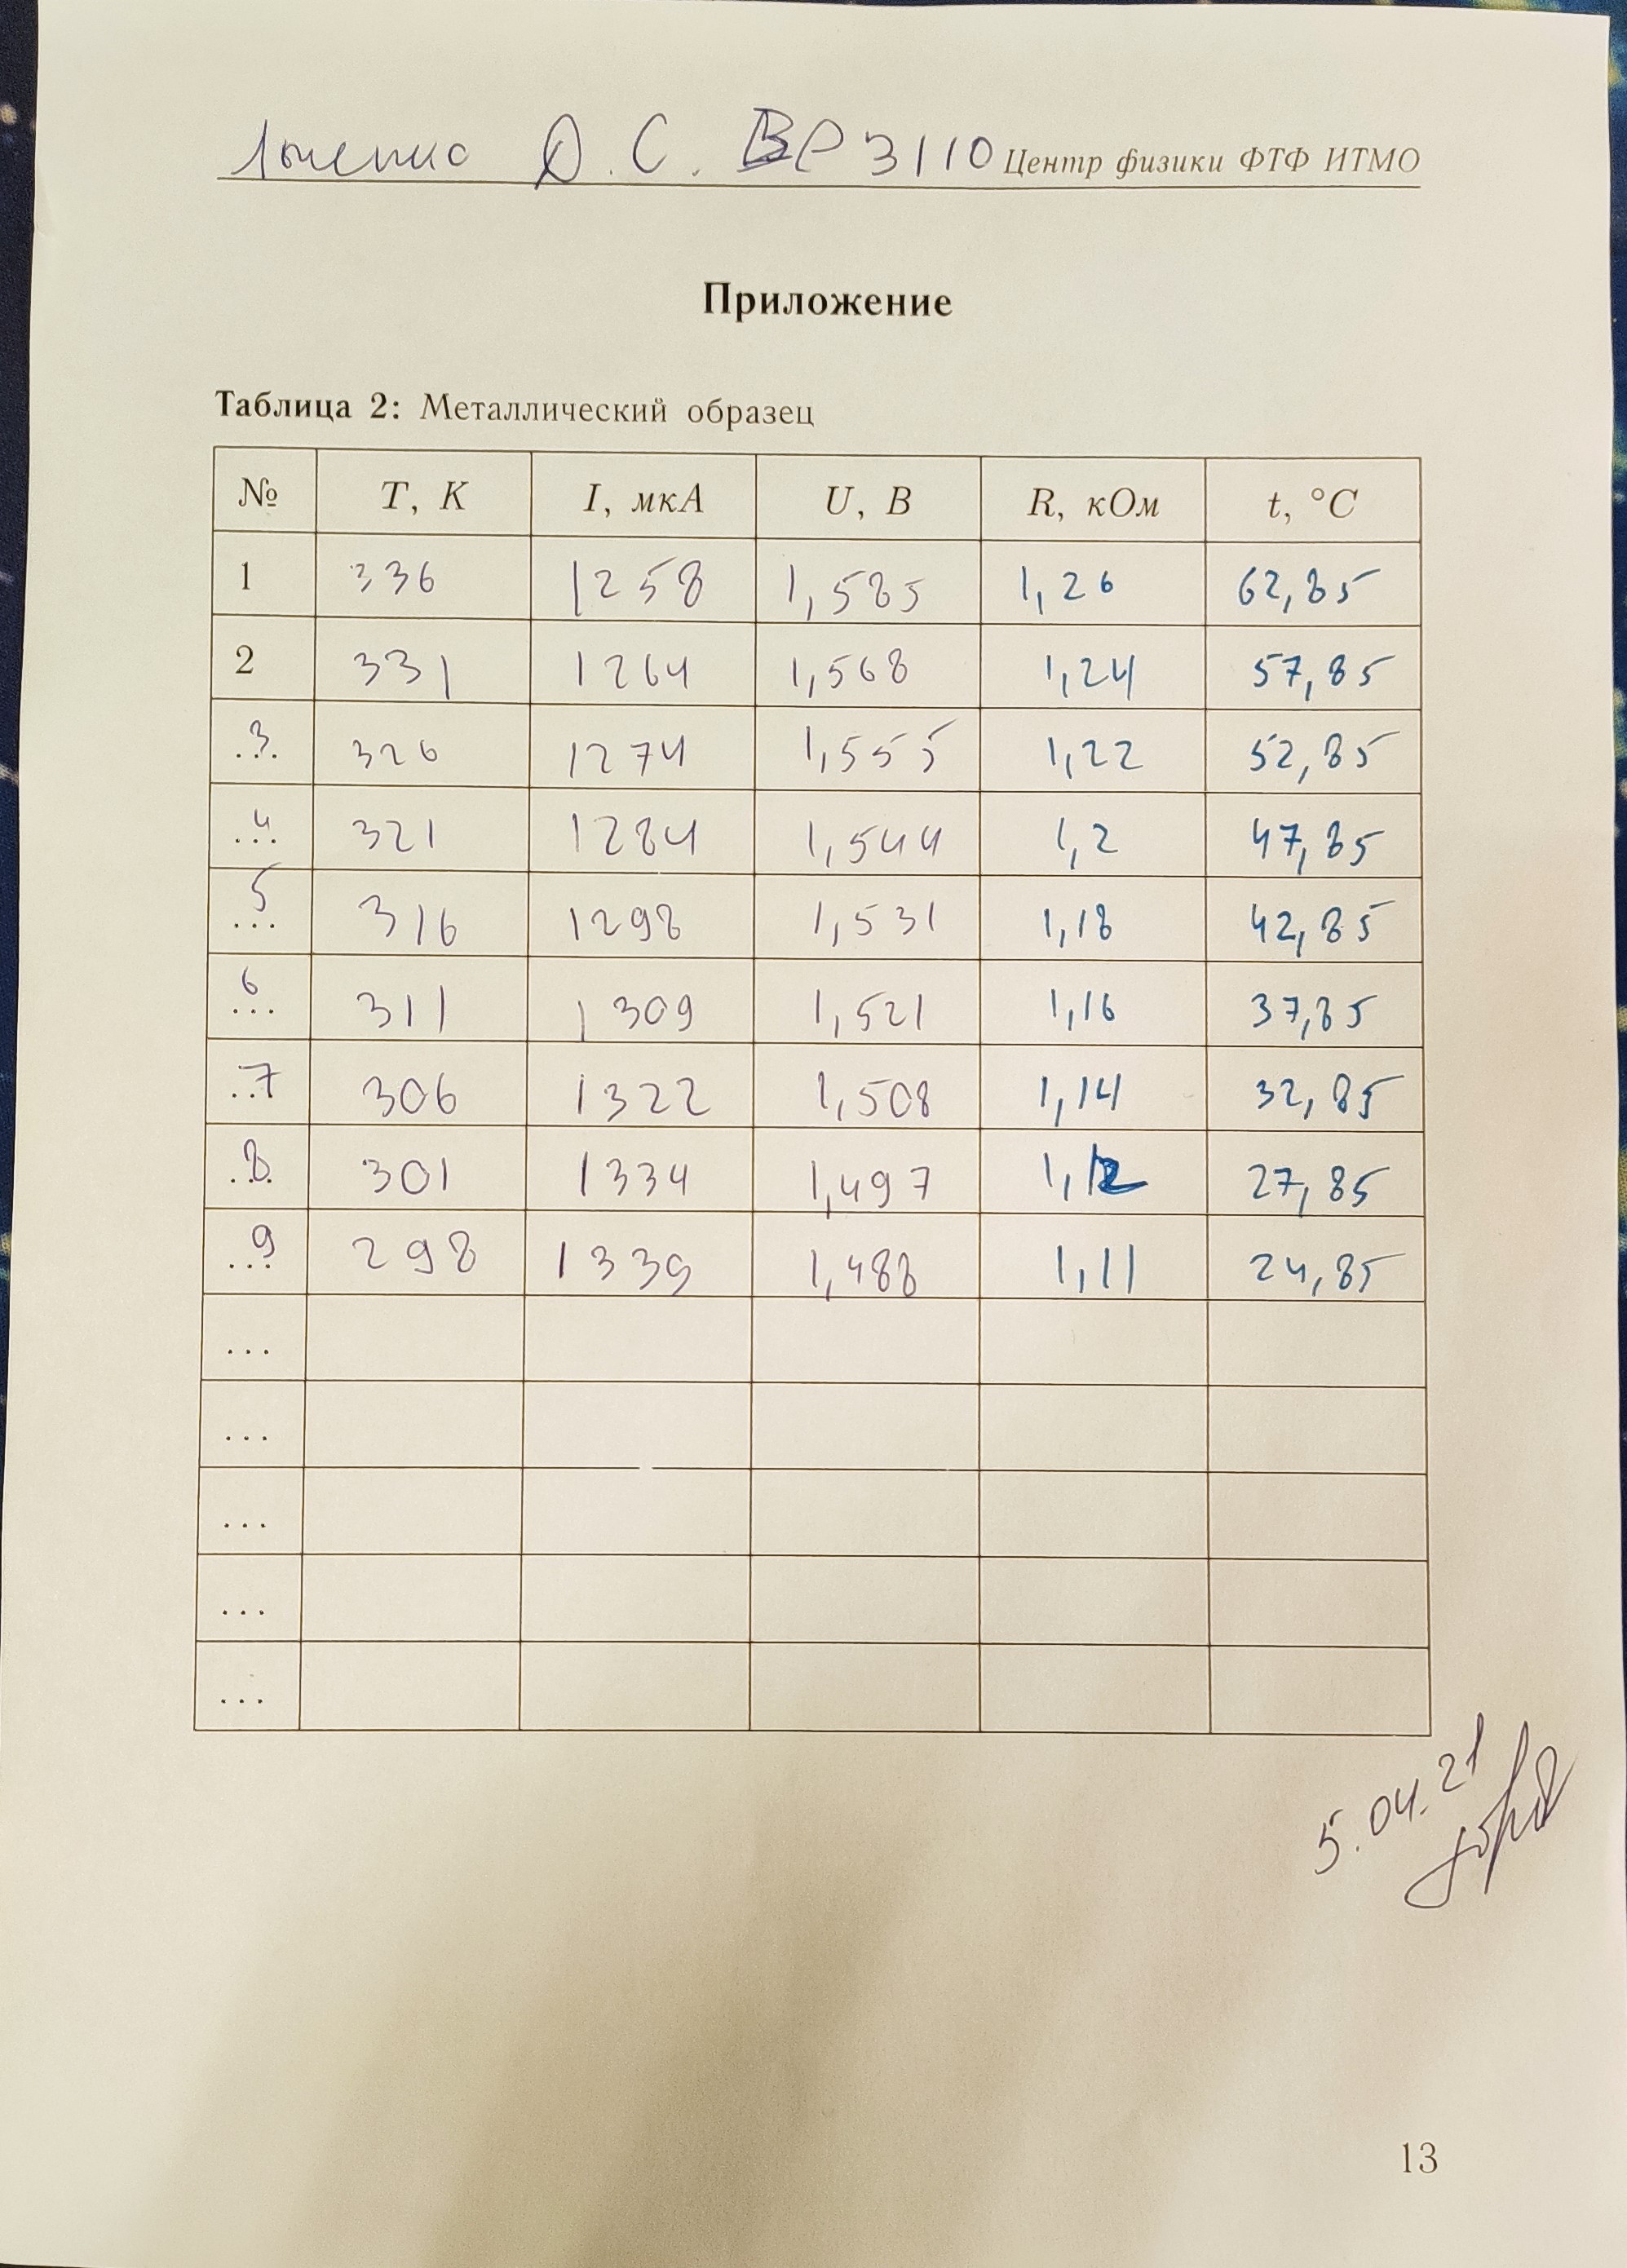 Д. С. ВР 3110 Центр физики ФТФ ИТМО
Приложение
Таблица 2: Металлический образец
№ T, K I, мкА U, В R, кОм t, °C
1 336 1258 1,585 1,26 62,85
2 331 1264 1,568 1,24 57,85
...3 326 1274 1,555 1,22 52,85
...4 321 1284 1,544 1,2 47,85
...5 316 1298 1,531 1,18 42,85
...6 311 1309 1,521 1,16 37,85
...7 306 1322 1,508 1,14 32,85
...8 301 1334 1,497 1,12 27,85
...9 298 1339 1,488 1,11 24,85
...
...
...
...
...
5.04.21
13